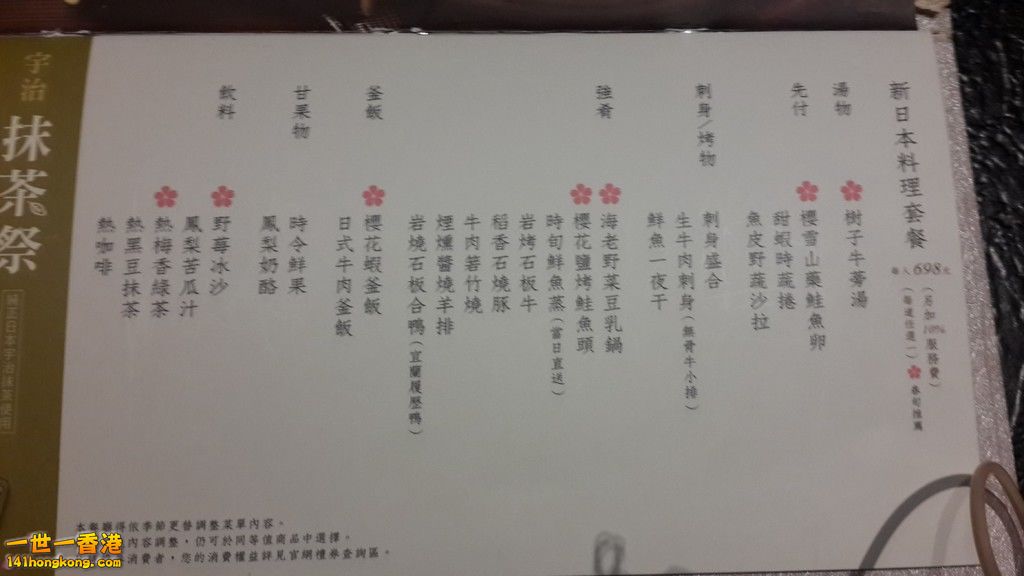 新日本料理套餐
每人698元
(另加10%服務費)
(每道任選一)
春旬推薦
湯物
樹子牛蒡湯
先付
櫻雪山藥鮭魚卵
甜蝦時蔬捲
魚皮野蔬沙拉
刺身/烤物
刺身盛合
生牛肉刺身(無骨牛小排)
鮮魚一夜干
強肴
海老野菜豆乳鍋
櫻花鹽烤鮭魚頭
時旬鮮魚蒸(當日直送)
岩烤石板牛
稻香石燒豚
牛肉箬竹燒
煙燻醬燒羊排
岩燒石板合鴨(宜蘭履歷鴨)
釜飯
櫻花蝦釜飯
日式牛肉釜飯
甘果物
時令鮮果
鳳梨奶酪
飲料
野莓冰沙
鳳梨苦瓜汁
熱梅香綠茶
熱黑豆抹茶
熱咖啡
本餐廳得依季節更替調整菜單內容。
內容調整,仍可於同等值商品中選擇。
消費者,您的消費權益詳見官網禮券查詢區。
宇治
抹茶祭
純正日本宇治抹茶使用
一世一香港
141hongkong.com